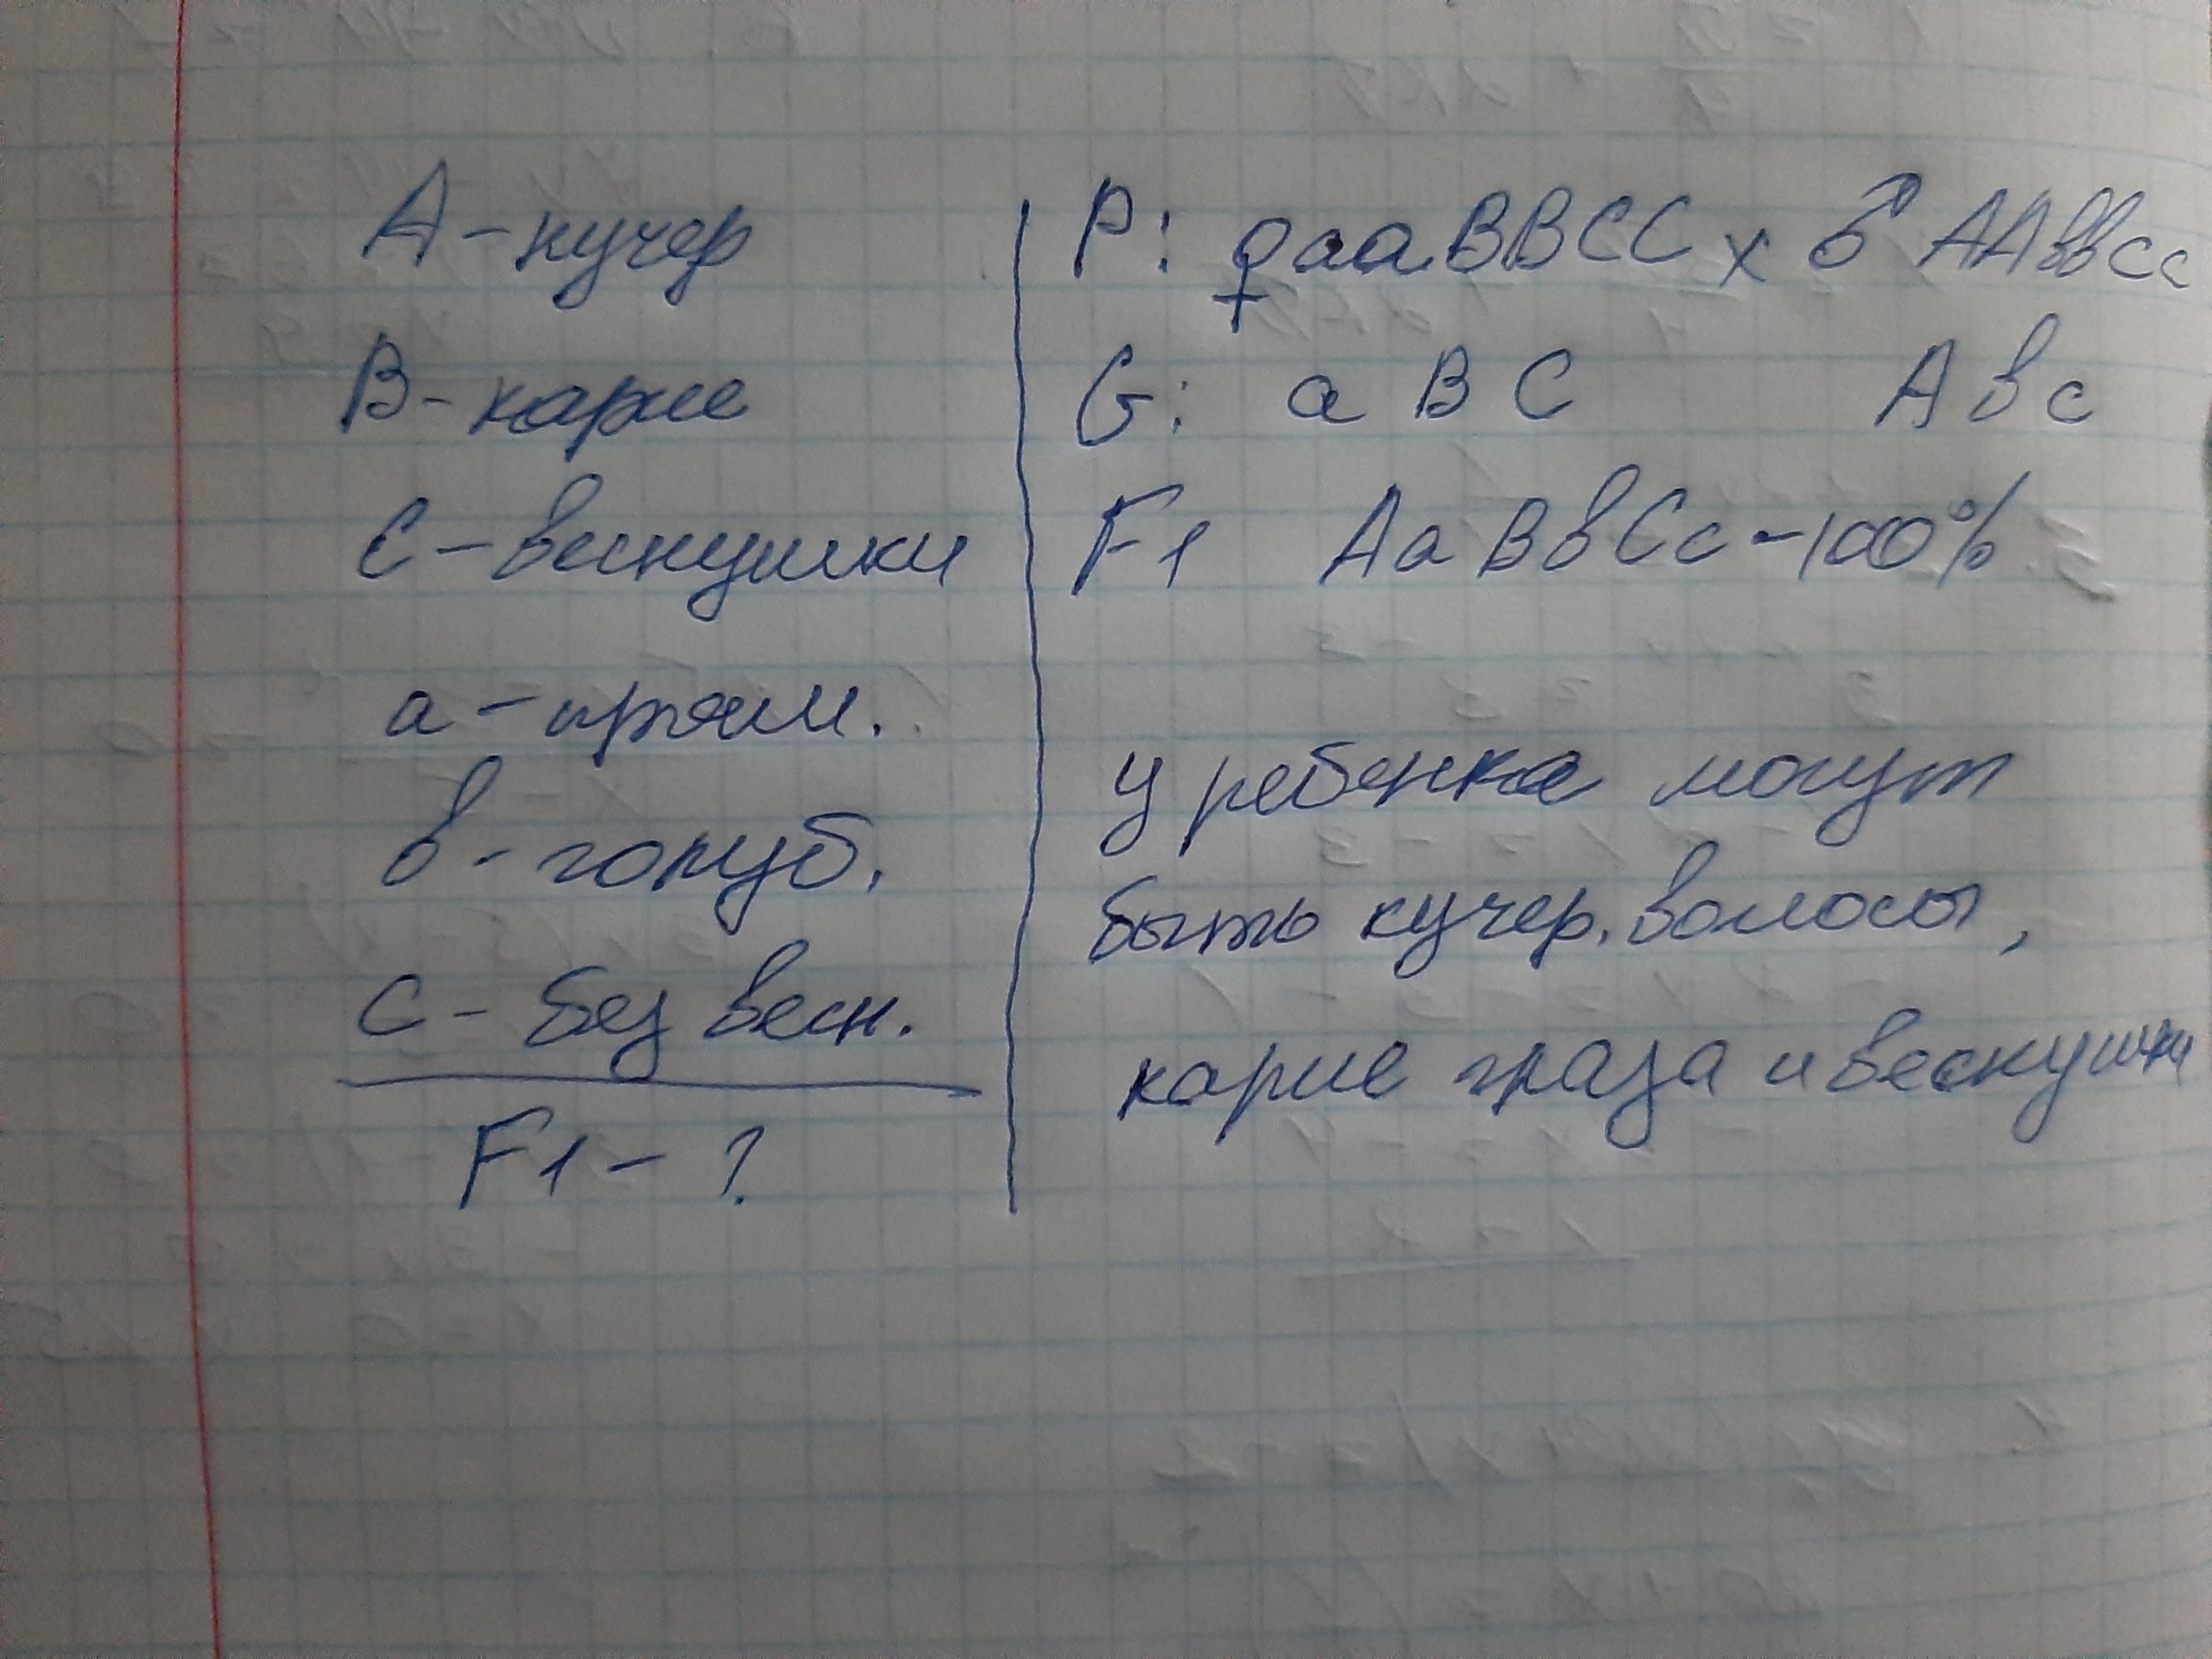 А - кучер
В - карие
С - веснушки
а - прям.
в - голуб.
с - без весн.
F1 - ?
Р: ♀ ааВВСС х ♂ ААввсс
G: а В С А в с
F1 АаВвСс - 100%
у ребенка могут
быть кучер. волосы,
карие глаза и веснушки